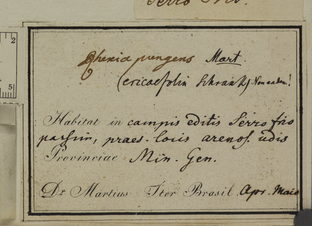 Serro Frio.
2
Rhexia pungens Mart
(ericaefolia Schrank
Habitat in campis editis Serro frio
passim, praes. locis arenos. udis
Provinciae Min. Gen.
Dr Martius Iter Brasil. Apr. Maio